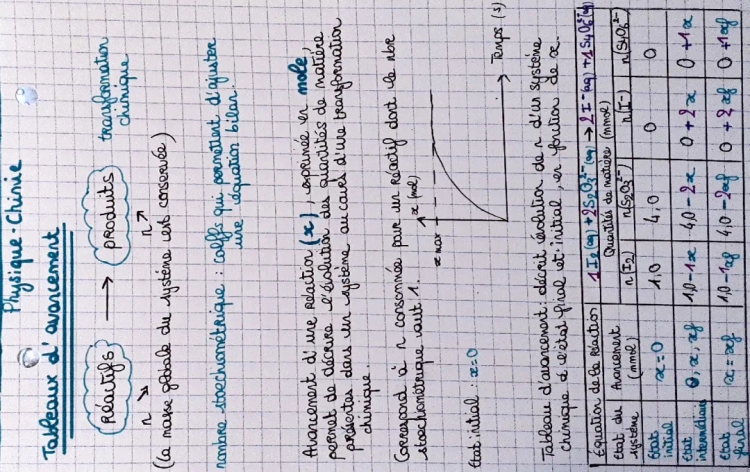 Physique - Chimie
Tableaux d'avancement
Réactifs → produits transformation
chimique
n ↘ n ↗
(la masse globale du système est conservée)
nombre stoechiométrique : coeffs qui permettent d'ajuster
une équation bilan.
Avancement d'une réaction (x), exprimée en mole,
permet de décrire l'évolution des quantités de matière
présentes dans un système au cours d'une transformation
chimique.
Correspond à n consommée pour un réactif dont le nbr
stoechiométrique vaut 1.
x (mol)
x max
Temps (s)
état initial : x=0
Tableau d'avancement : décrit évolution de n d'un système
chimique de l'état final et initial, en fonction de x.
Équation de la réaction 1I2 (aq) + 2S2O3²⁻(aq) → 2I-(aq) + 1S4O6²⁻(aq)
État du système Avancement (mmol) Quantités de matière (mmol)
n(I2) n(S2O3²⁻) n(I-) n(S4O6²⁻)
État initial x=0 1,0 4,0 0 0
État intermédiaire 0, x, xf 1,0-1x 4,0-2x 0+2x 0+1x
État final x=xf 1,0-1xf 4,0-2xf 0+2xf 0+1xf